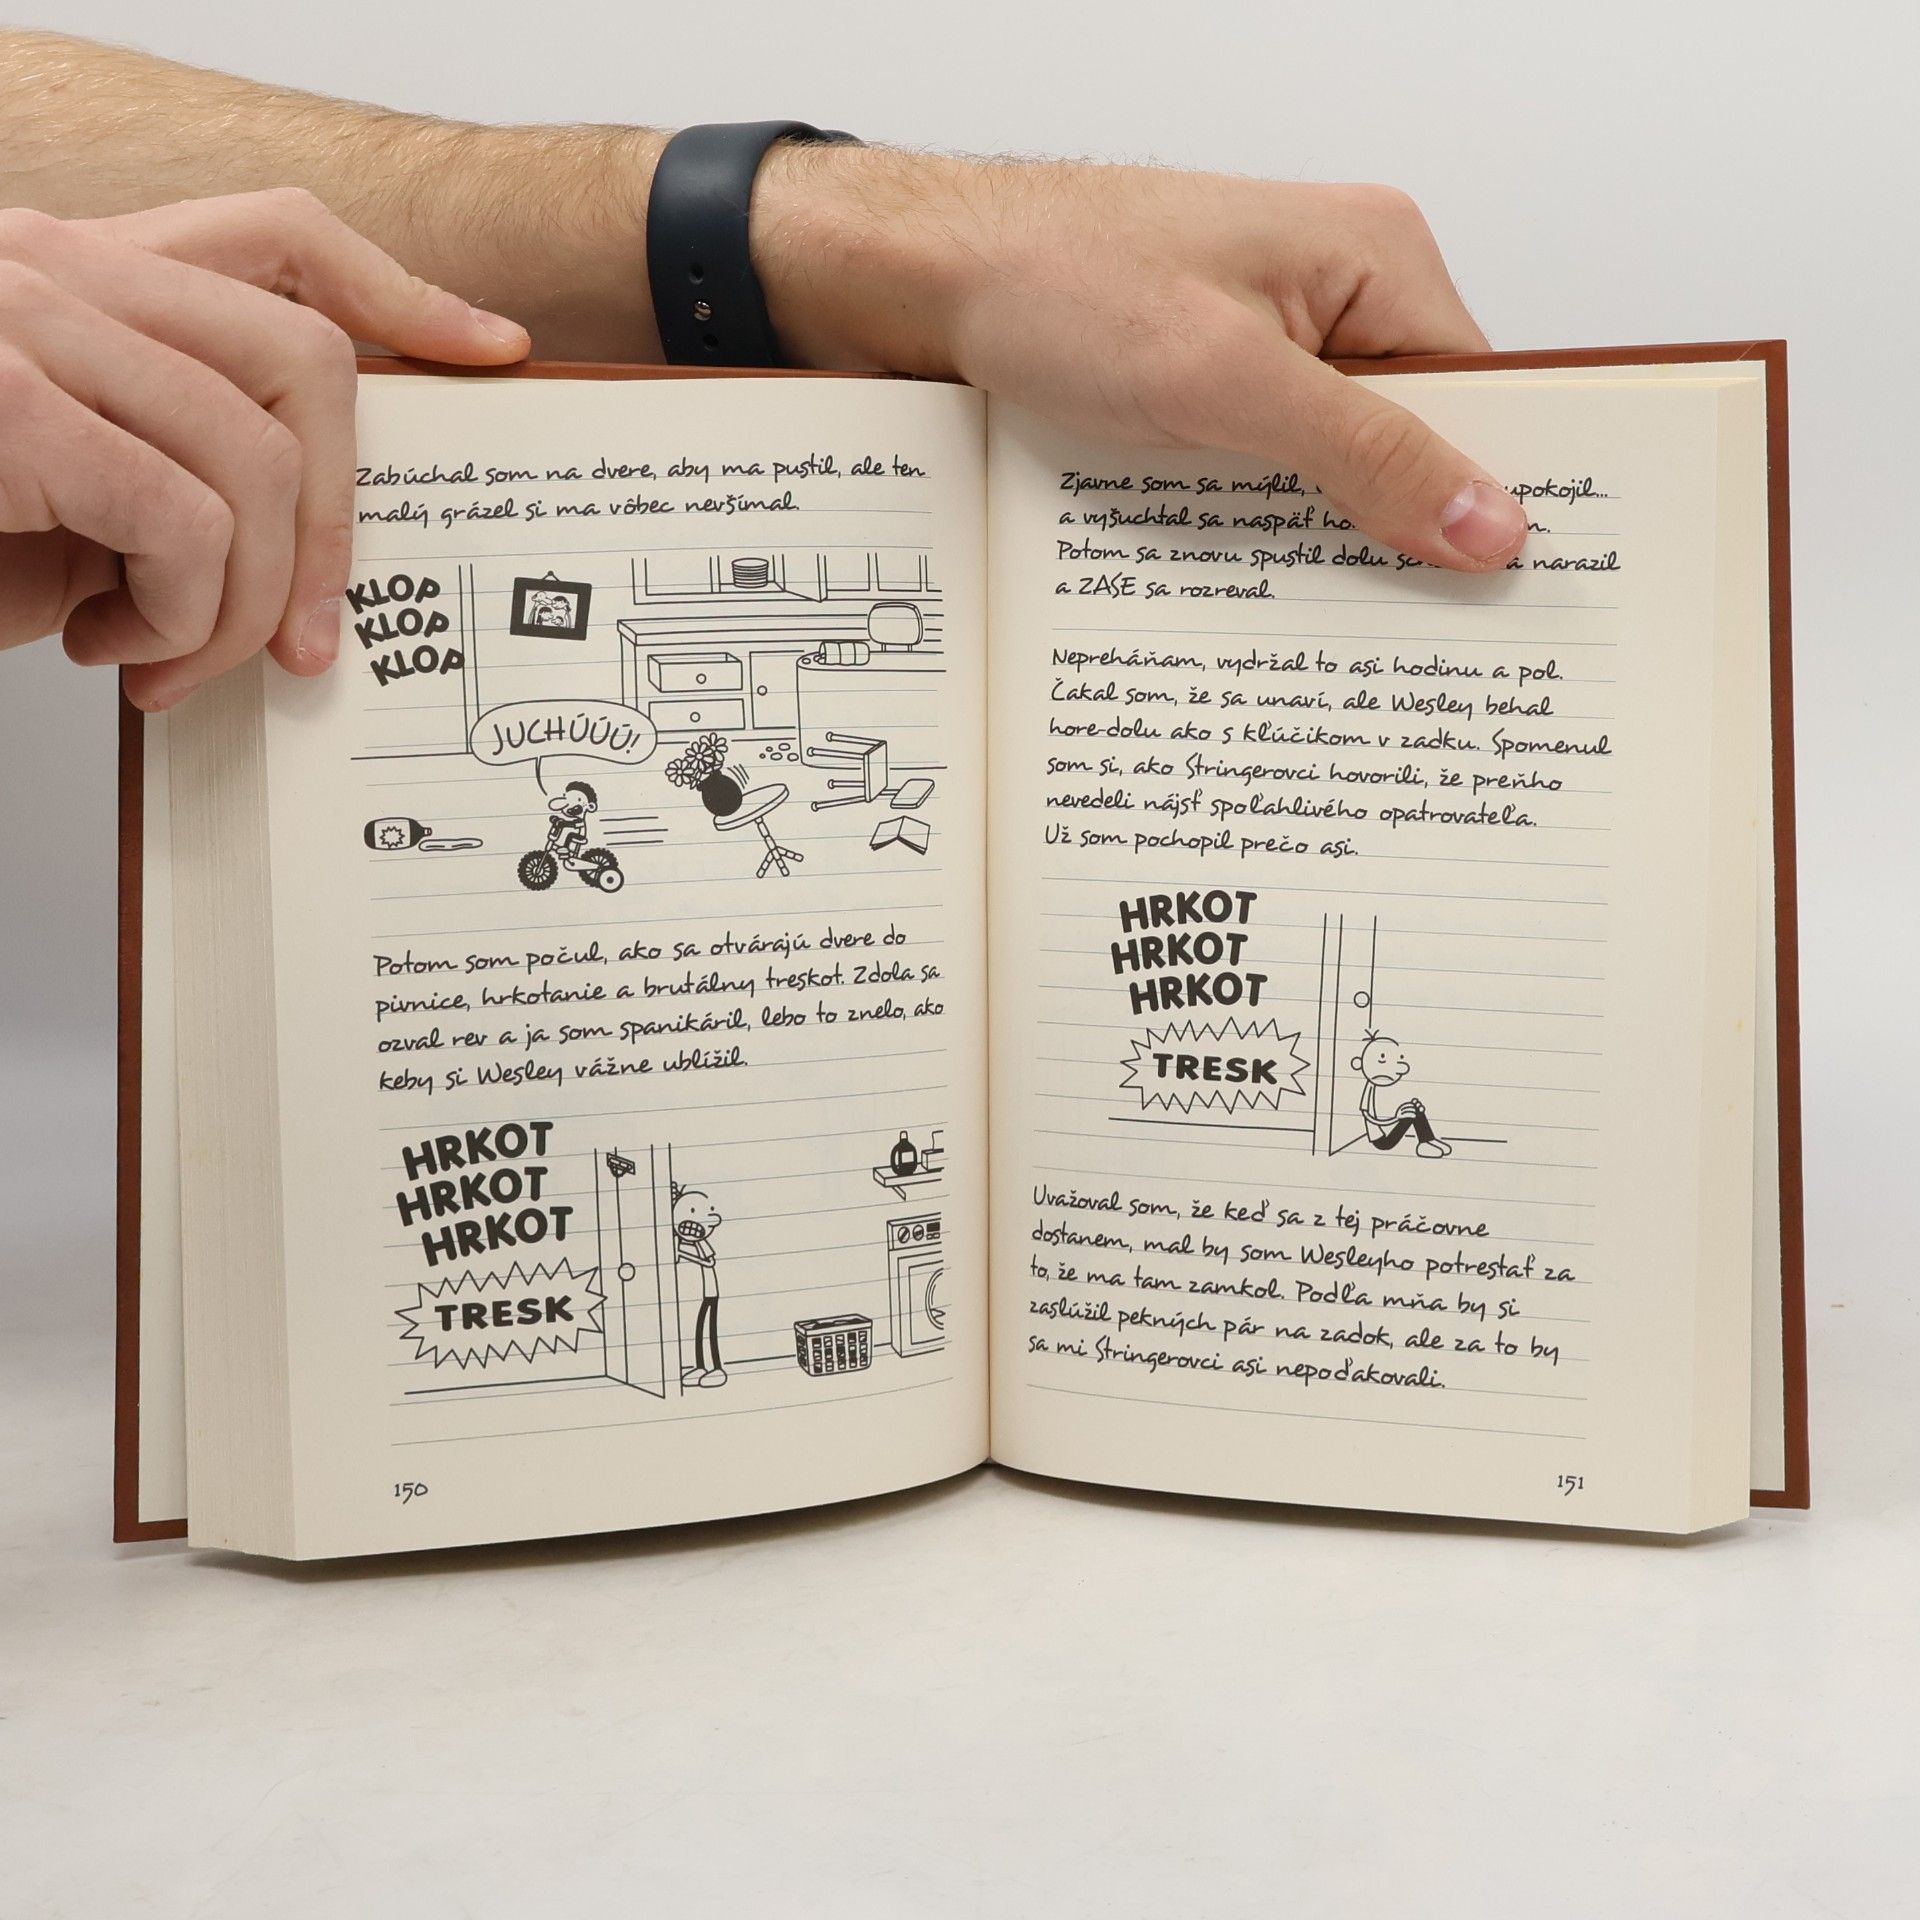 Zabúchal som na dvere, aby ma pustil, ale ten
malý grázel si ma vôbec nevšímal.
KLOP
KLOP
KLOP
JUCHÚÚÚ!
Potom som počul, ako sa otvárajú dvere do
pivnice, hrkotanie a brutálny treskot. Zdola sa
ozval rev a ja som spanikáril, lebo to znelo, ako
keby si Wesley vážne ublížil.
HRKOT
HRKOT
HRKOT
TRESK
150
Zjavne som sa mýlil, upokojil...
a vyšuchtal sa naspäť
Potom sa znovu spustil dolu a narazil
a ZASE sa rozreval.
Nepreháňam, vydržal to asi hodinu a pol.
Čakal som, že sa unaví, ale Wesley behal
hore-dolu ako s kľúčikom v zadku. Spomenul
som si, ako Stringerovci hovorili, že preňho
nevedeli nájsť spoľahlivého opatrovateľa.
Už som pochopil prečo asi.
HRKOT
HRKOT
HRKOT
TRESK
Uvažoval som, že keď sa z tej práčovne
dostanem, mal by som Wesleyho potrestať za
to, že ma tam zamkol. Podľa mňa by si
zaslúžil pekných pár na zadok, ale za to by
sa mi Stringerovci asi nepoďakovali.
151